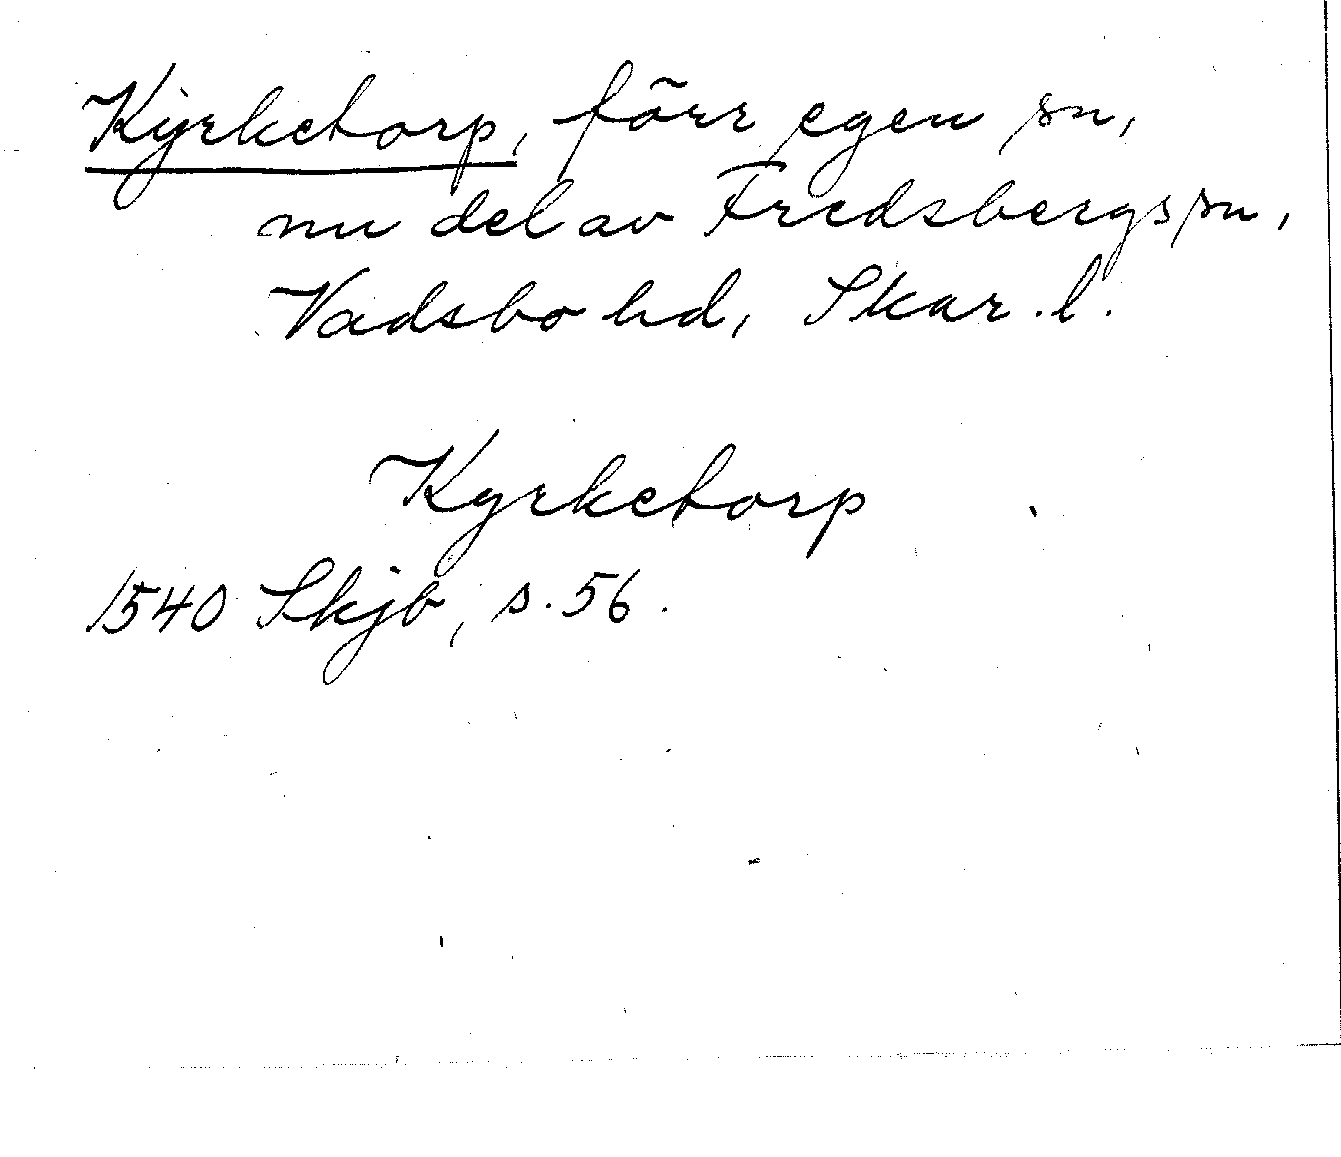 Kyrketorp, förr egen sn,
nu del av Fredsbergs sn,
Vadsbo hd, Skar. l.
Kyrketorp
1540 Skjb, s. 56.